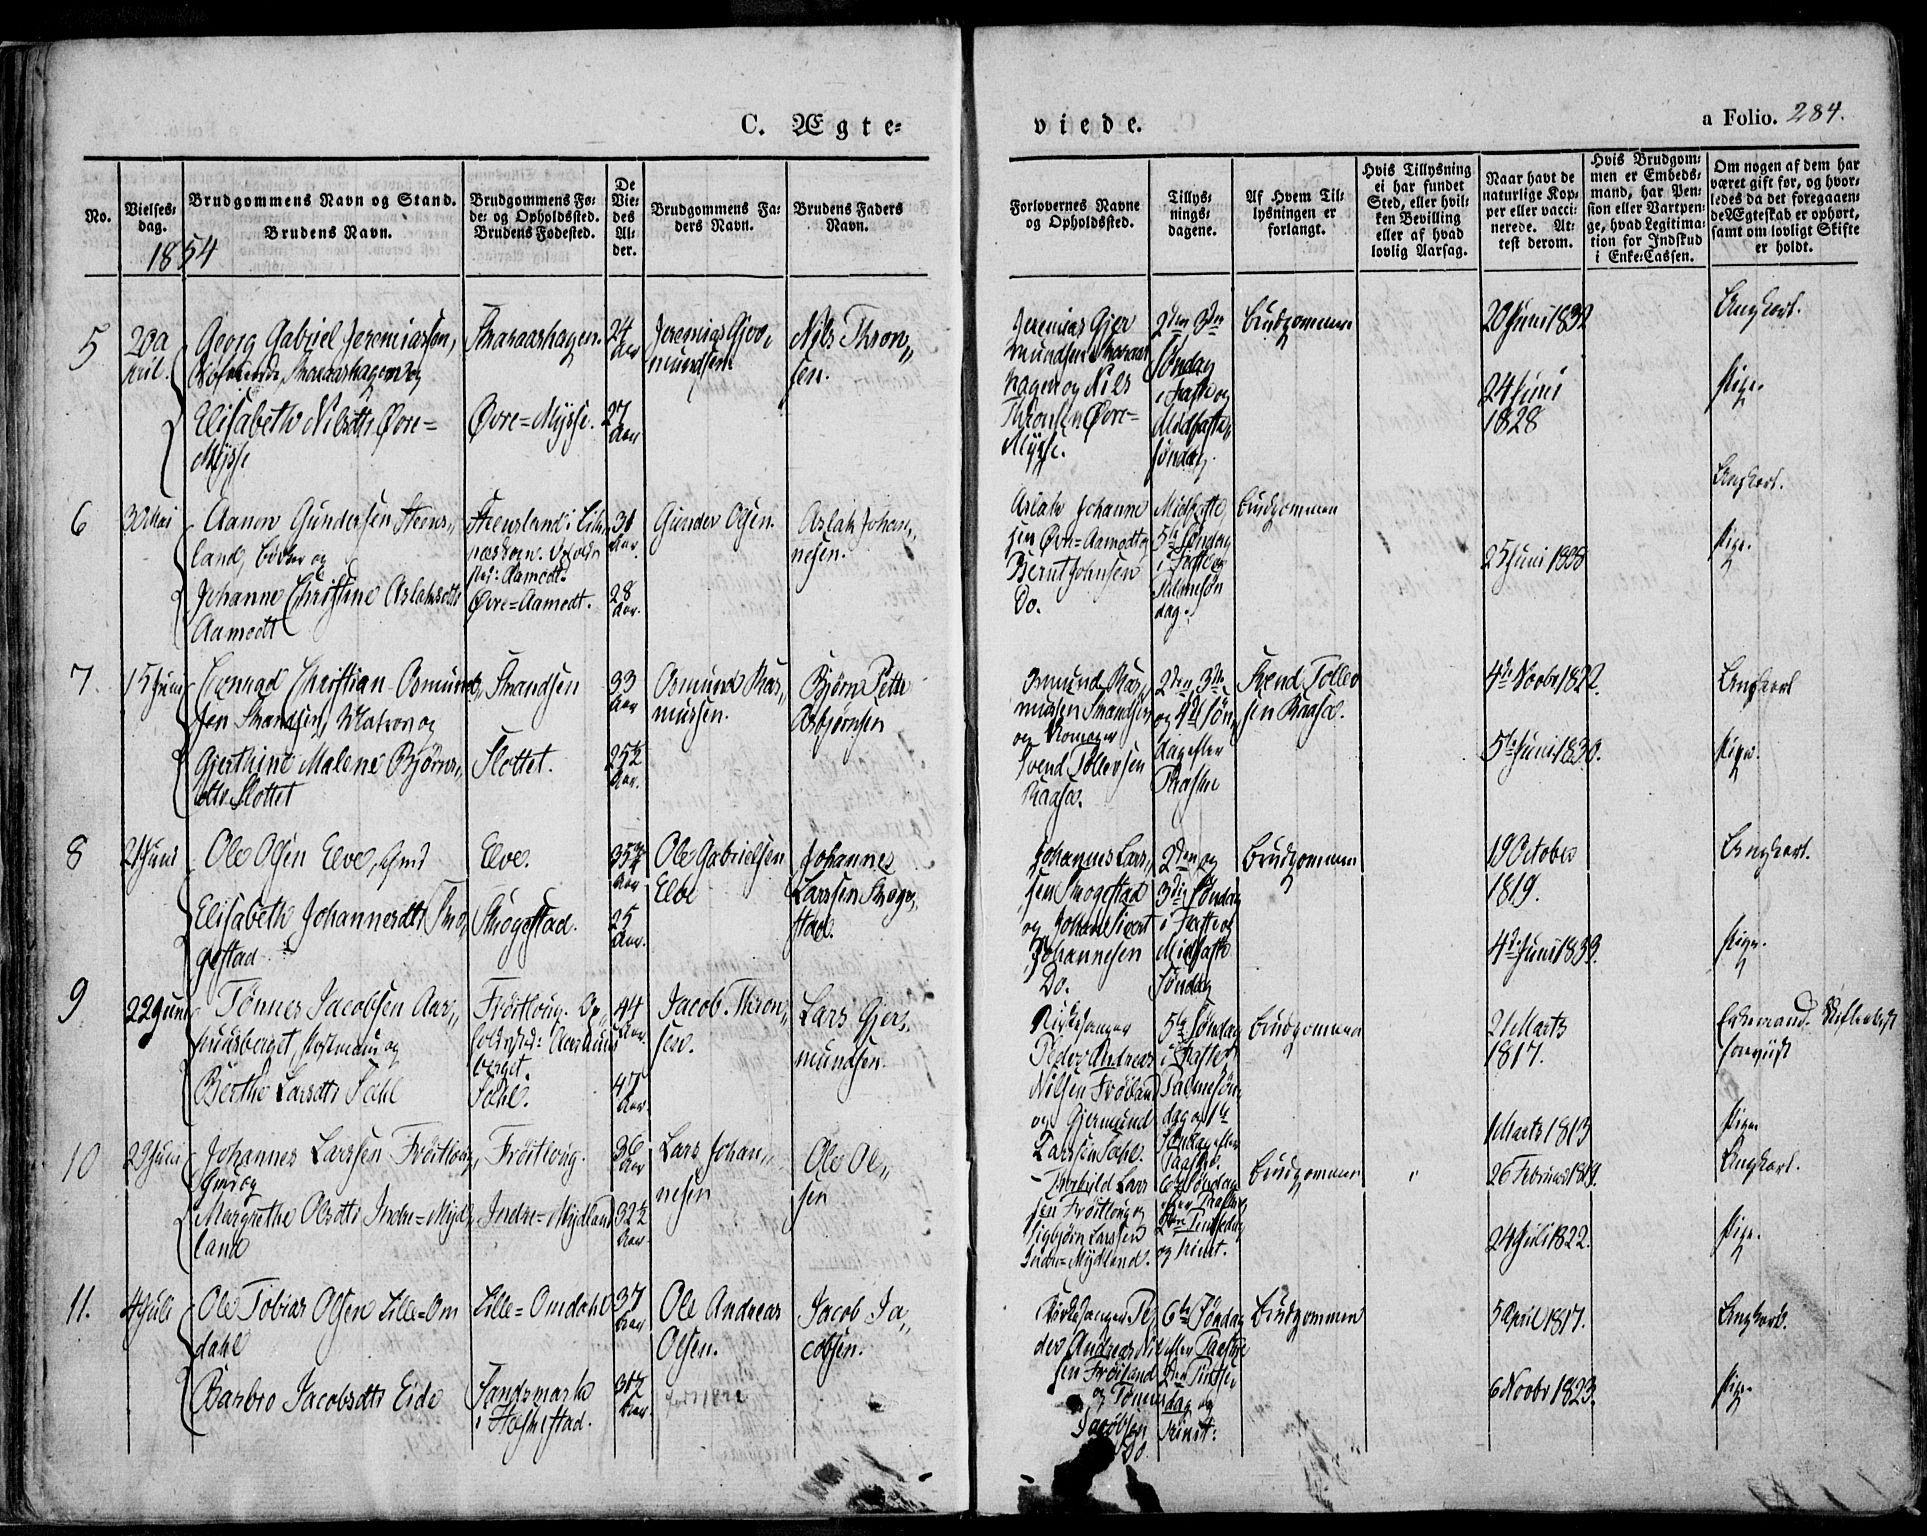 C. Ægte=
viede.
a Folio. 284.
No.
Vielses=
dag.
1854
Brudgommens Navn og Stand.
Brudens Navn.
Brudgommens Fø=
de= og Opholdssted.
Brudens Fødested.
De
Vie=
des
Al=
der.
Brudgommens Fa=
ders Navn.
Brudens Faders
Navn.
Forlovernes Navne
og Opholdssted.
Tillys=
nings=
dagene.
Af Hvem Til=
lysningen er
forlangt.
Hvis Tillysning
ei har fundet
Sted, eller hvil=
ken Bevilling
eller af hvad
lovlig Aarsag.
Naar havt de
naturlige Kop=
per eller vacci=
nerede. At=
test derom.
Hvis Brudgom=
men er Embeds=
mand, har Pen=
sion eller Vartpen=
ge, hvad Legitima=
tion for Indskud
i Enke=Cassen.
Om nogen af dem har
været gift før, og hvor=
ledes da det foregaaen=
de Ægteskab er ophørt,
samt om lovligt Skifte
er holdt.
5
20 A
pril.
Georg Gabriel Jeremiassen,
Elisabeth Nilsdtr Øvre=
Mysse
Øvre=Mysse.
24
Aar
27
Aar
Jeremias Gjer
mundsen
Nils Thron„
sen.
Jeremias Gjer
mundsen
hagen og Nils
Thronsen Øvre=
Mysse.
2den 3die
Søndag
i Faste og
Midfaste
søndag.
Brudgommen
20 Juni 1832
24 Juni
1828
Ungkarl.
Pige.
6
30 Mai
Aanen Gundersen Steens„
land, og
Johanne Christine Aslaksdtr
Aamodt
Steensland i
sted: Aamodt.
Øvre=Aamodt.
31
Aar.
28
Aar.
Gunder Olsen.
Aslak Johan„
nesen.
Aslak Johanne
sen Øvre=Aamodt og
Bernt Johnsen
Do.
Midfaste,
5te Søndag
i Faste og
Palmesøn
dag.
Brudgommen
25 Juni 1828
Ungkarl.
Pige.
7.
15 Juni
Conrad Christian Osmund
sen Strandsen, Matros og
Gjerthine Malene Bjørns„
dtr Slottet
Strandsen
Slottet.
33
Aar
25½
Aar.
Osmund Ras„
mussen.
Bjørn Peter
Asbjørnsen
Osmund Ras„
mussen Strandsen
og
Svend Tollevsen
Raasæ.
2den, 3die
og 4de Søn„
dag efter
Paaske
Svend Tollev
sen Raasæ.
4de Novbr 1822.
5te Juni 1830.
Ungkarl
Pige.
8
21 Juni
Ole Olsen Elve, Gmd
Elisabeth Johannesdtr Skoge„
gestad
Elve.
Skogestad.
35¾
Aar
25
Aar.
Ole Gabrielsen
Elve
Johannes
Larssen Skoge„
stad.
Johannes Lars„
sen Skogestad
og Johan Sivert
Johannesen
Do.
2den og
3die Søndag
i Faste og
Midfaste
Søndag
Brudgommen
19 October
1819.
4de Juni 1833.
Ungkarl.
Pige.
9
22 Juni
Tønnes Jacobsen Aar„
huusberget, og
Berthe Larsdtr Sæhl
Frøitloug. Op„
holdssted: Aarhuus
berget.
Sæhl.
44
Aar.
47
Aar.
Jacob Thron„
sen.
Lars Gjer„
mundsen.
Kirkesanger
Peder Andreas
Nilsen Frøiland
og Gjermund
Larssen Sæhl.
5te Søndag
i Faste,
Palmesøn„
dag og 1ste
Søndag efter
Paaske.
Brudgommen
21 Marts
1817.
1 Marts 1813
Enkemand. Skiftebrev
forevist
Pige
10
29 Juni
Johannes Larssen Frøitloug,
Gmd og
Margrethe Olsdtr Indre=Myd„
land
Frøitloug.
Indre=Mydland
36
Aar
32½
Aar
Lars Johan„
nesen
Ole Ol„
sen
Lars
sen Frøitloug og
Sigbjørn Larssen
Indre=Mydland.
6te Søndag
efter Paaske
2den Pintsedag
og Trinit.
Brudgommen
26 Februar 1819.
24 Juli 1822.
Ungkarl.
Pige.
11.
4 Juli
Ole Tobias Olsen Lille=Om
dahl
Barbro Jacobsdtr Eide
Lille=Omdahl
Sandsmark
i Helmestad.
37
Aar
30½
Aar.
Ole Andreas
Olsen.
Jacob Ja„
cobsen.
Kirkesanger Pe„
der Andreas Nil
sen Frøiland
og Tønnes
Jacobsen
Do.
6te Søndag
efter Paaske
2den Pintse
dag og
Trinit:
Brudgommen
5 April 1817.
6 Novbr 1823.
Ungkarl.
Pige.